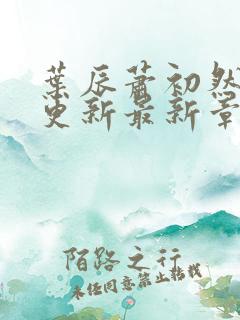 葉辰蕭初然
更新最新章
陌路之行
未经同意禁止转载